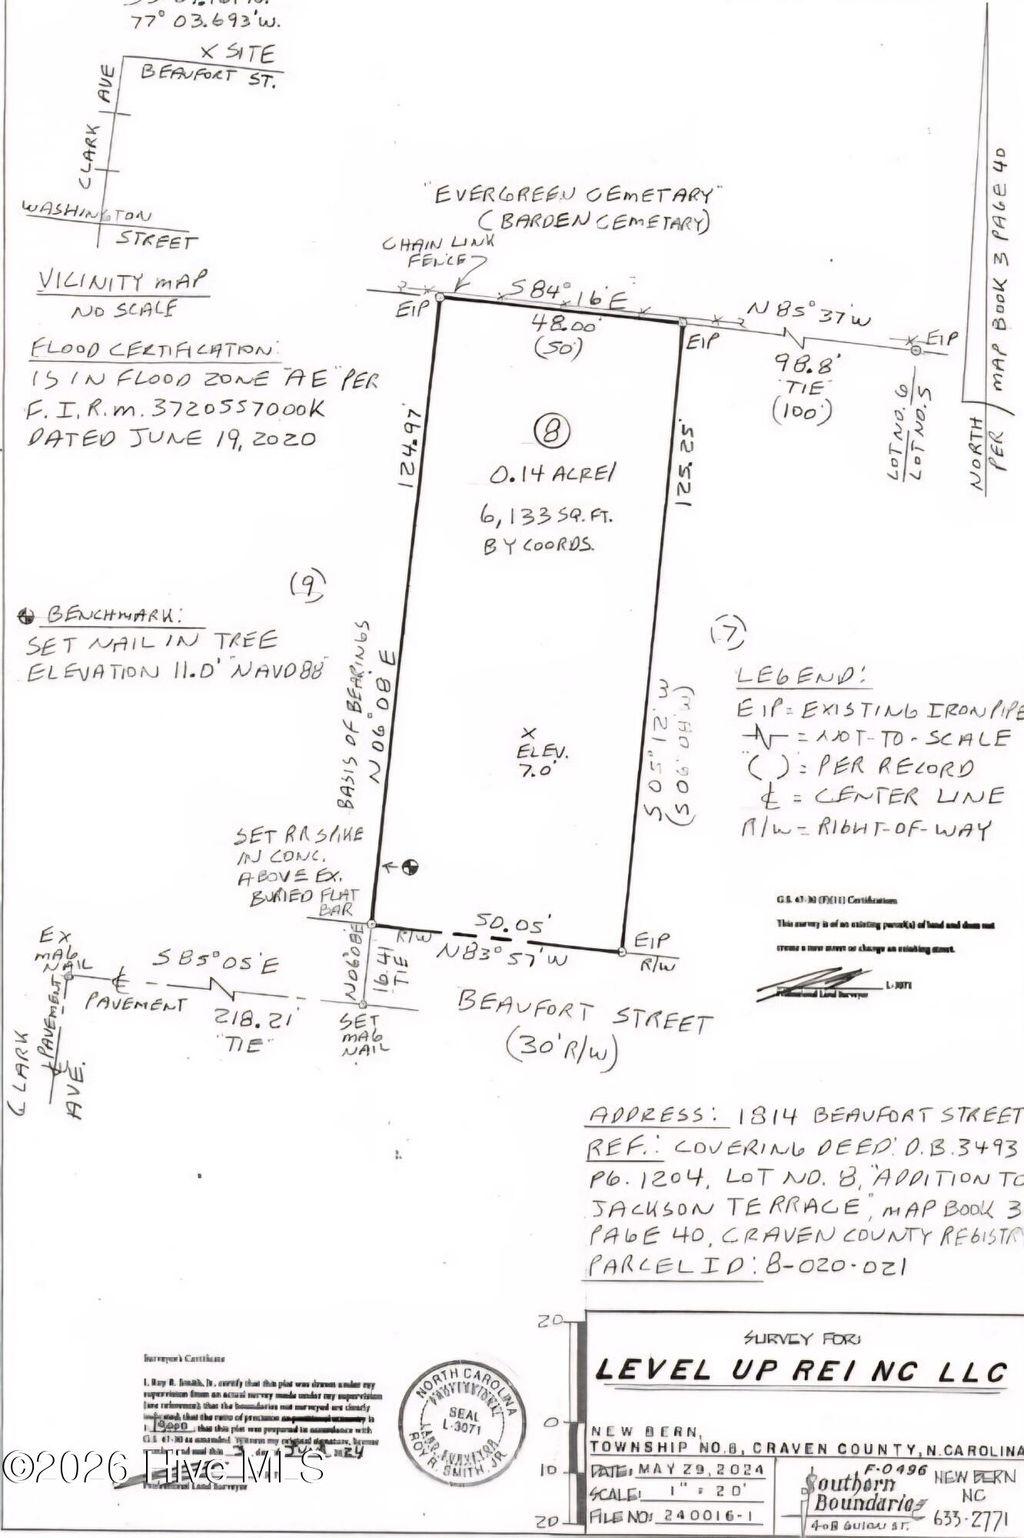 77° 03.693'W.
X SITE
BEAUFORT ST.
CLARK AVE
WASHINGTON
STREET
VICINITY MAP
NO SCALE
FLOOD CERTIFICATION:
IS IN FLOOD ZONE "AE" PER
F. I. R. M. 3720557000K
DATED JUNE 19, 2020
"EVERGREEN CEMETARY"
(BARDEN CEMETARY)
CHAIN LINK
FENCE
EIP
S 84° 16' E
48.00'
(50')
EIP
N 85° 37' W
98.8'
"TIE"
(100')
EIP
LOT NO. 6
LOT NO. 5
NORTH
PER MAP BOOK 3 PAGE 40
124.97'
8
0.14 ACRE/
6,133 SQ. FT.
BY COORDS.
125.25'
(9)
BENCHMARK:
SET NAIL IN TREE
ELEVATION 11.0' "NAVD88"
(7)
BASIS OF BEARINGS
N 06° 08' E
X
ELEV.
7.0'
S 05° 12' W
LEGEND:
EIP = EXISTING IRON PIPE
= NOT-TO-SCALE
( ) = PER RECORD
℄ = CENTER LINE
R/W = RIGHT-OF-WAY
SET RR SPIKE
IN CONC.
ABOVE EX.
BURIED FLAT
BAR
R/W
50.05'
N 83° 57' W
EIP
R/W
G.S. 47-30 (F)(11) Certifications
This survey is of an existing parcel(s) of land and does not
create a new street or change an existing street.
L-3071
Professional Land Surveyor
EX
MAG
NAIL
S 85° 05' E
℄
PAVEMENT
218.21'
"TIE"
N 06° 08' E
16.41
TIE
SET
MAG
NAIL
BEAUFORT STREET
(30' R/W)
℄ PAVEMENT
CLARK AVE.
ADDRESS: 1814 BEAUFORT STREET
REF.: COVERING DEED: D.B. 3493
PG. 1204, LOT NO. 8, "ADDITION TO
JACKSON TERRACE", MAP BOOK 3
PAGE 40, CRAVEN COUNTY REGISTRY
PARCEL ID: 8-020-021
Surveyor's Certificate
I, Roy R. Smith, Jr. certify that this plat was drawn under my
supervision from an actual survey made under my supervision
(see reference); that the boundaries not surveyed are clearly
indicated; that the ratio of precision is
that this plat was prepared in accordance with
G.S. 47-30 as amended. Witness my original signature, license
Professional Land Surveyor
NORTH CAROLINA
PROFESSIONAL
SEAL
L-3071
LAND SURVEYOR
ROY R. SMITH, JR.
20
0
10
20
SURVEY FOR:
LEVEL UP REI NC LLC
NEW BERN,
TOWNSHIP NO. 8, CRAVEN COUNTY, N. CAROLINA
DATE: MAY 29, 2024
SCALE: 1" = 20'
FILE NO: 240016-1
F-0496
Southern
Boundaries
408 GUION ST.
NEW BERN
NC
633-2771
©2026 Hive MLS